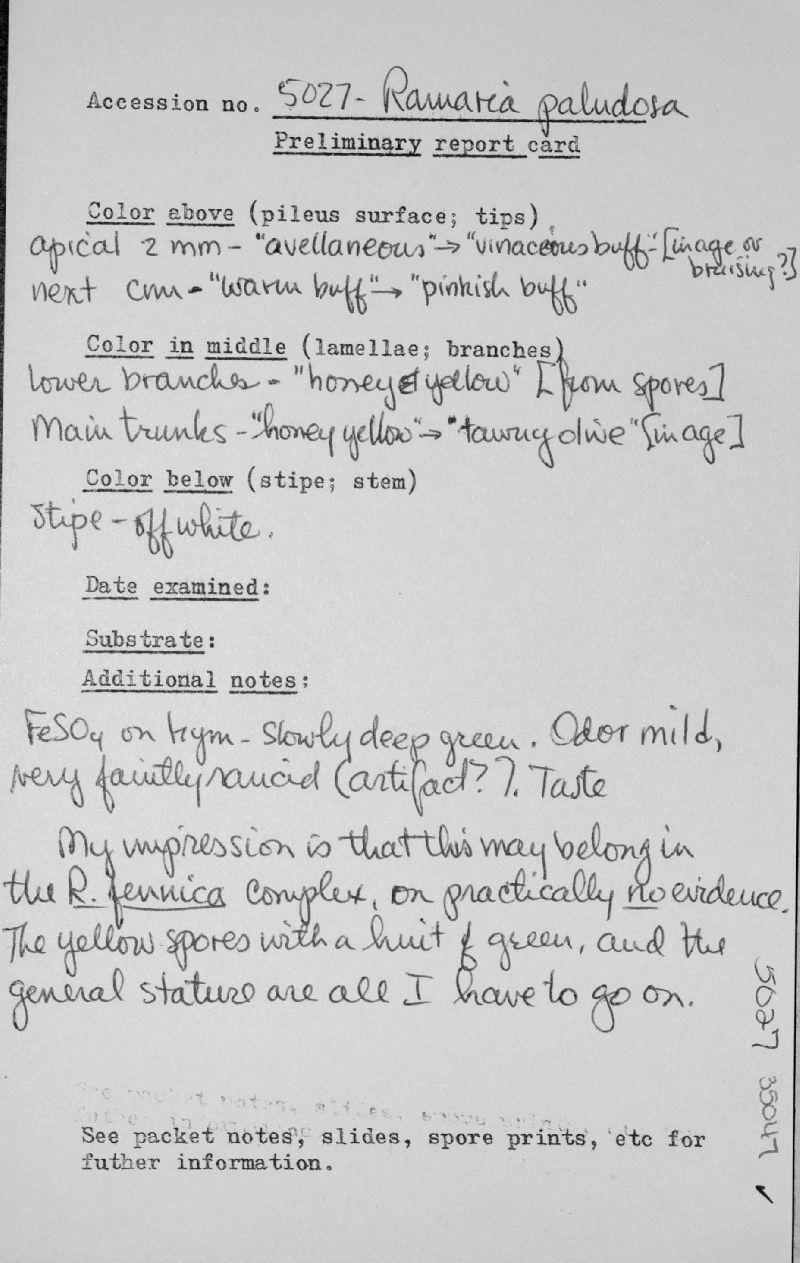 Accession no. 5027- Ramaria paludosa
Preliminary report card
Color above (pileus surface; tips)
apical 2 mm - "avellaneous" → "vinaceous buff" [in age or bruising?]
next cm - "warm buff" → "pinkish buff"
Color in middle (lamellae; branches)
lower branches - "honey yellow" [from spores]
Main trunks - "honey yellow" → "tawny olive" [in age]
Color below (stipe; stem)
Stipe - off white.
Date examined:
Substrate:
Additional notes:
FeSO4 on hym - slowly deep green. Odor mild,
very faintly rancid (artifact?). Taste
My impression is that this may belong in
the R. fennica complex, on practically no evidence.
The yellow spores with a hint of green, and the
general stature are all I have to go on.
See packet notes, slides, spore prints, etc for
futher information.
5027 35047